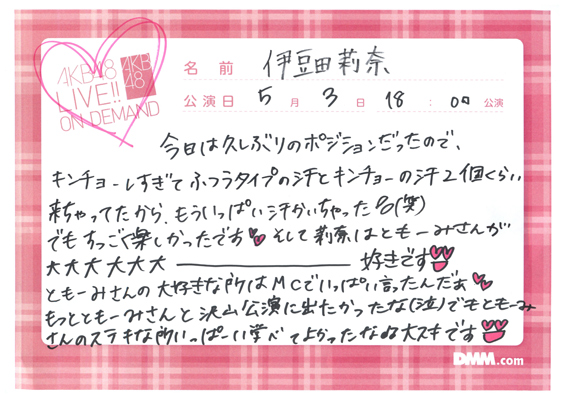 AKB48
LIVE!!
ON DEMAND
AKB
48
名前 伊豆田莉奈
公演日 5月3日 18:00公演
今日は久しぶりのポジションだったので、
キンチョーしすぎてふつうタイプの汗とキンチョーの汗2個くらい
来ちゃってたから、もういっぱい汗かいちゃった(笑)
でもすっごく楽しかったです そして莉奈はともーみさんが
大大大大大大 ――― 好きです
ともーみさんの大好きな所はMCでいっぱい言ったんだぁ
もっとともーみさんと沢山公演に出たかったな(泣)でもともーみ
さんのステキな所いっぱーい学べてよかったなぁ大スキです
DMM.com